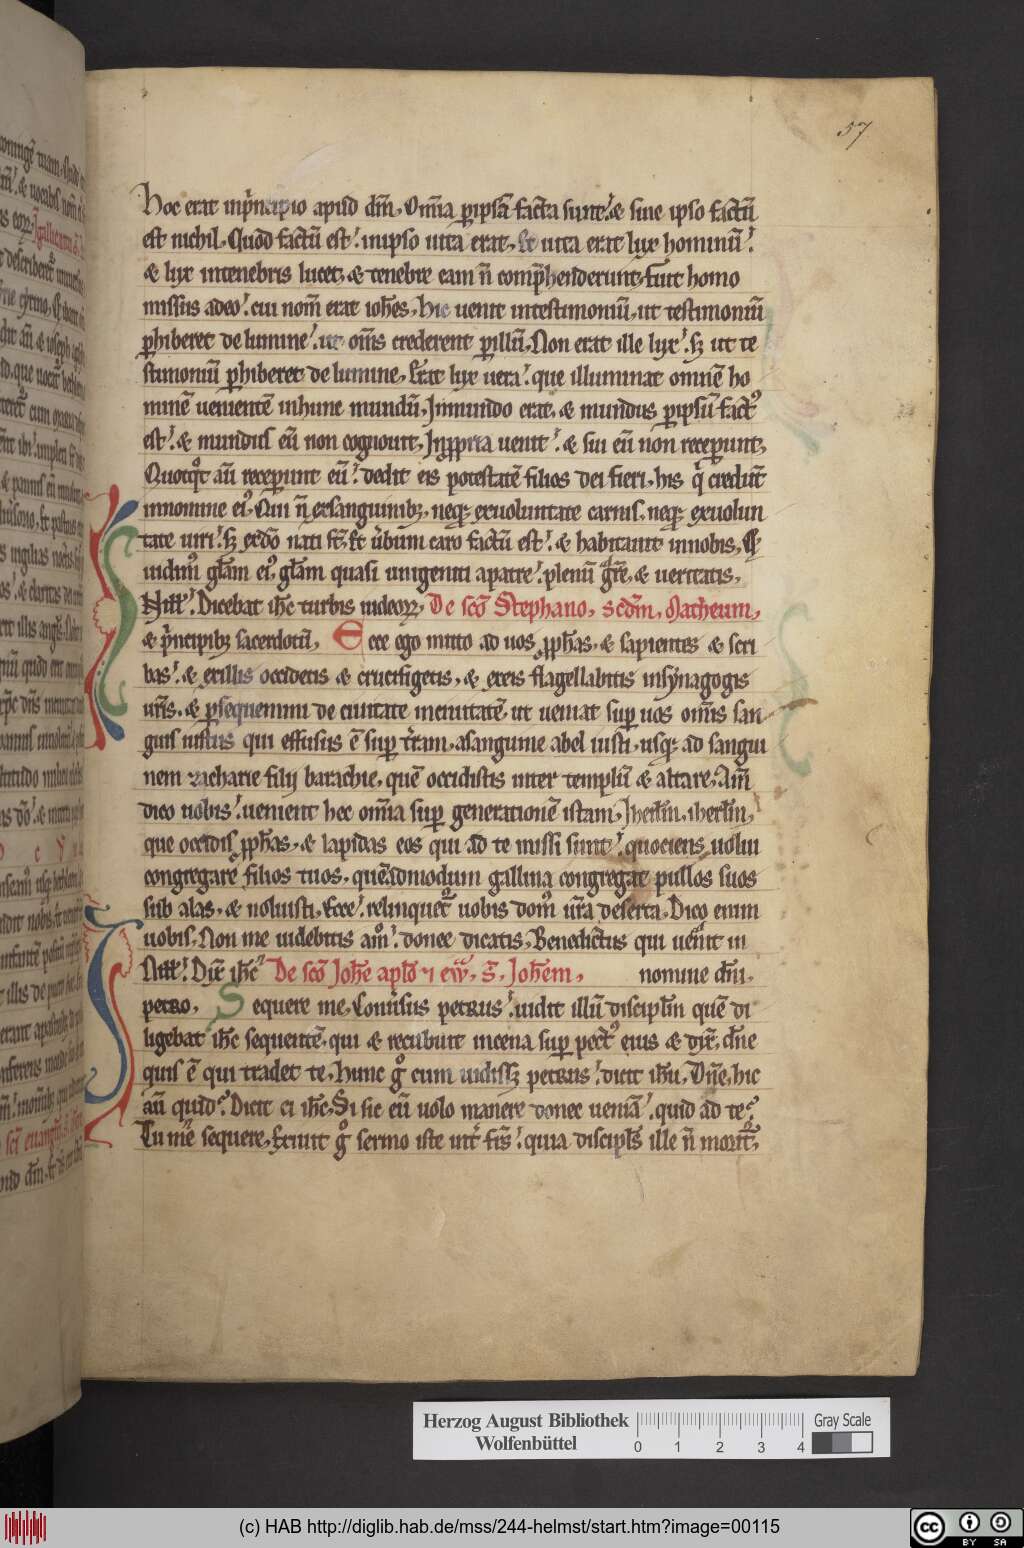 57
Hoc erat inp̃ncipio apud dm̄. Om̄ia p̱ ipsū facta sunt. & sine ipso factū
est nichil. Quod factū est. inipso uita erat. Et uita erat lux hominū.
& lux intenebris lucet. & tenebre eam n̄ comp̃henderunt. fuit homo
missus adeo. cui nom̄ erat ioh̄es. Hic uenit intestimoniū. ut testimoniū
p̱hiberet de lumine. ut om̄s crederent p̱ illū. Non erat ille lux. sꝫ ut te
stimoniū p̱hiberet de lumine. Erat lux uera. que illuminat omnē ho
minē uenientē inhunc mundū. Inmundo erat. & mundus p̱ ipsū factꝰ
est. & mundus eū non cognouit. Inp̱pria uenit. & sui eū non receperunt.
Quotqͦt aū receperunt eū. dedit eis potestatē filios dei fieri. his qͥ credūt
innomine eiꝰ. Qui n̄ exsanguinibꝫ. neqꝫ exuoluntate carnis. neqꝫ exuolun
tate uiri. sꝫ exdō nati st̄. Et ủbum caro factū est. & habitauit innobis. Et
uidimꝰ gl̄am eiꝰ. gl̄am quasi unigeniti apatre. plenū gr̄e. & ueritatis.
Nill̄. Dicebat ih̄c turbis iudeoꝝ. De sc̄o Stephano. secdm̄. Matheum.
& p̃ncipibꝫ sacerdotū. Ecce ego mitto ad uos ꝓph̄as. & sapientes & scri
bas. & exillis occidetis & crucifigetis. & exeis flagellabitis insynagogis
ur̄is. & p̱sequemini de ciuitate inciuitatē. ut ueniat suꝑ uos om̄is san
guis iustus qui effusus ē suꝑ tr̄am. asanguine abel iusti. usqꝫ ad sangui
nem zacharie filij barachie. quē occidistis inter templū & altare. Am̄
dico uobis. uenient hec om̄ia suꝑ generationē istam. Jherl̄m. iherl̄m.
que occidis ꝓph̄as. & lapidas eos qui ad te missi sunt. quociens uolui
congregare filios tuos. quēadmodum gallina congregat pullos suos
sub alas. & noluisti. Ecce. relinquet̃ uobis domꝰ ur̄a deserta. Dico enim
uobis. Non me uidebitis amꝰ. donec dicatis. Benedictus qui uenit in
Nill̄. Dix̄ ih̄c De sc̄o Joh̄e apl̄o ⁊ ew̄. s. Joh̄em. nomine dm̄i.
petro. Sequere me. Conủsus petrus. uidit illū discipl̄m quē di
ligebat ih̄c sequentē. qui & recubuit incena suꝑ pectꝰ eius & dix̄. dn̄e
quis ē qui tradet te. Hunc gͦ cum uidissꝫ petrus. dicit ih̄u. Dn̄e. hic
aū quid? Dicit ei ih̄c. Si sic eū uolo manere donec ueniā. quid ad te?
Tu me sequere. Exiuit gͦ sermo iste int̃ fr̄s. quia discipl̄s ille n̄ morit̃.
Herzog August Bibliothek
Wolfenbüttel
0 1 2 3 4
Gray Scale
(c) HAB http://diglib.hab.de/mss/244-helmst/start.htm?image=00115
cc BY SA